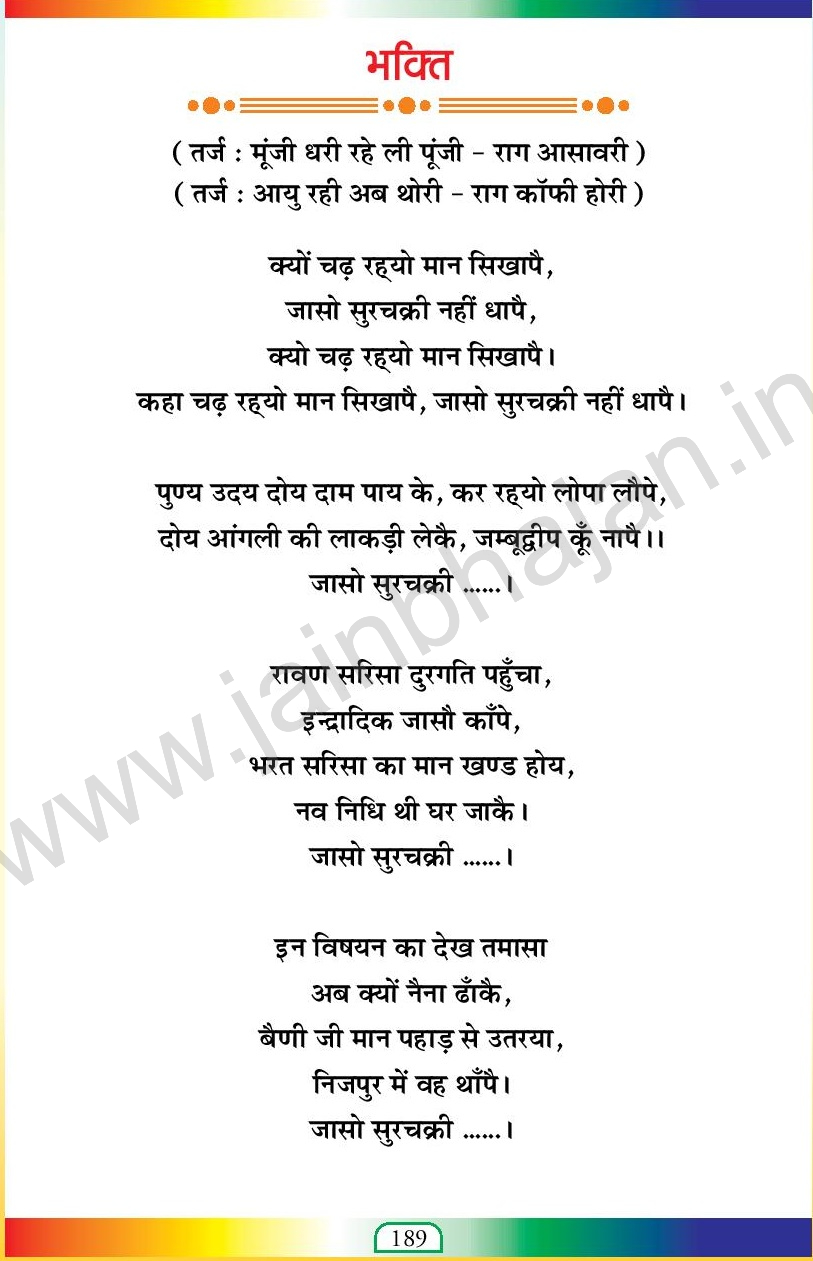 भक्ति
( तर्ज : मूंजी धरी रहे ली पूंजी - राग आसावरी )
( तर्ज : आयु रही अब थोरी - राग कॉफी होरी )
क्यों चढ़ रह्यो मान सिखापै,
जासो सुरचक्री नहीं धापै,
क्यो चढ़ रह्यो मान सिखापै।
कहा चढ़ रह्यो मान सिखापै, जासो सुरचक्री नहीं धापै।
पुण्य उदय दोय दाम पाय के, कर रह्यो लोपा लौपे,
दोय आंगली की लाकड़ी लेकै, जम्बूद्वीप कूँ नापै।।
जासो सुरचक्री ......।
रावण सरिसा दुरगति पहुँचा,
इन्द्रादिक जासौ काँपे,
भरत सरिसा का मान खण्ड होय,
नव निधि थी घर जाकै।
जासो सुरचक्री ......।
इन विषयन का देख तमासा
अब क्यों नैना ढाँकै,
बैणी जी मान पहाड़ से उतरया,
निजपुर में वह थाँपै।
जासो सुरचक्री ......।
189
www.jainbhajan.in